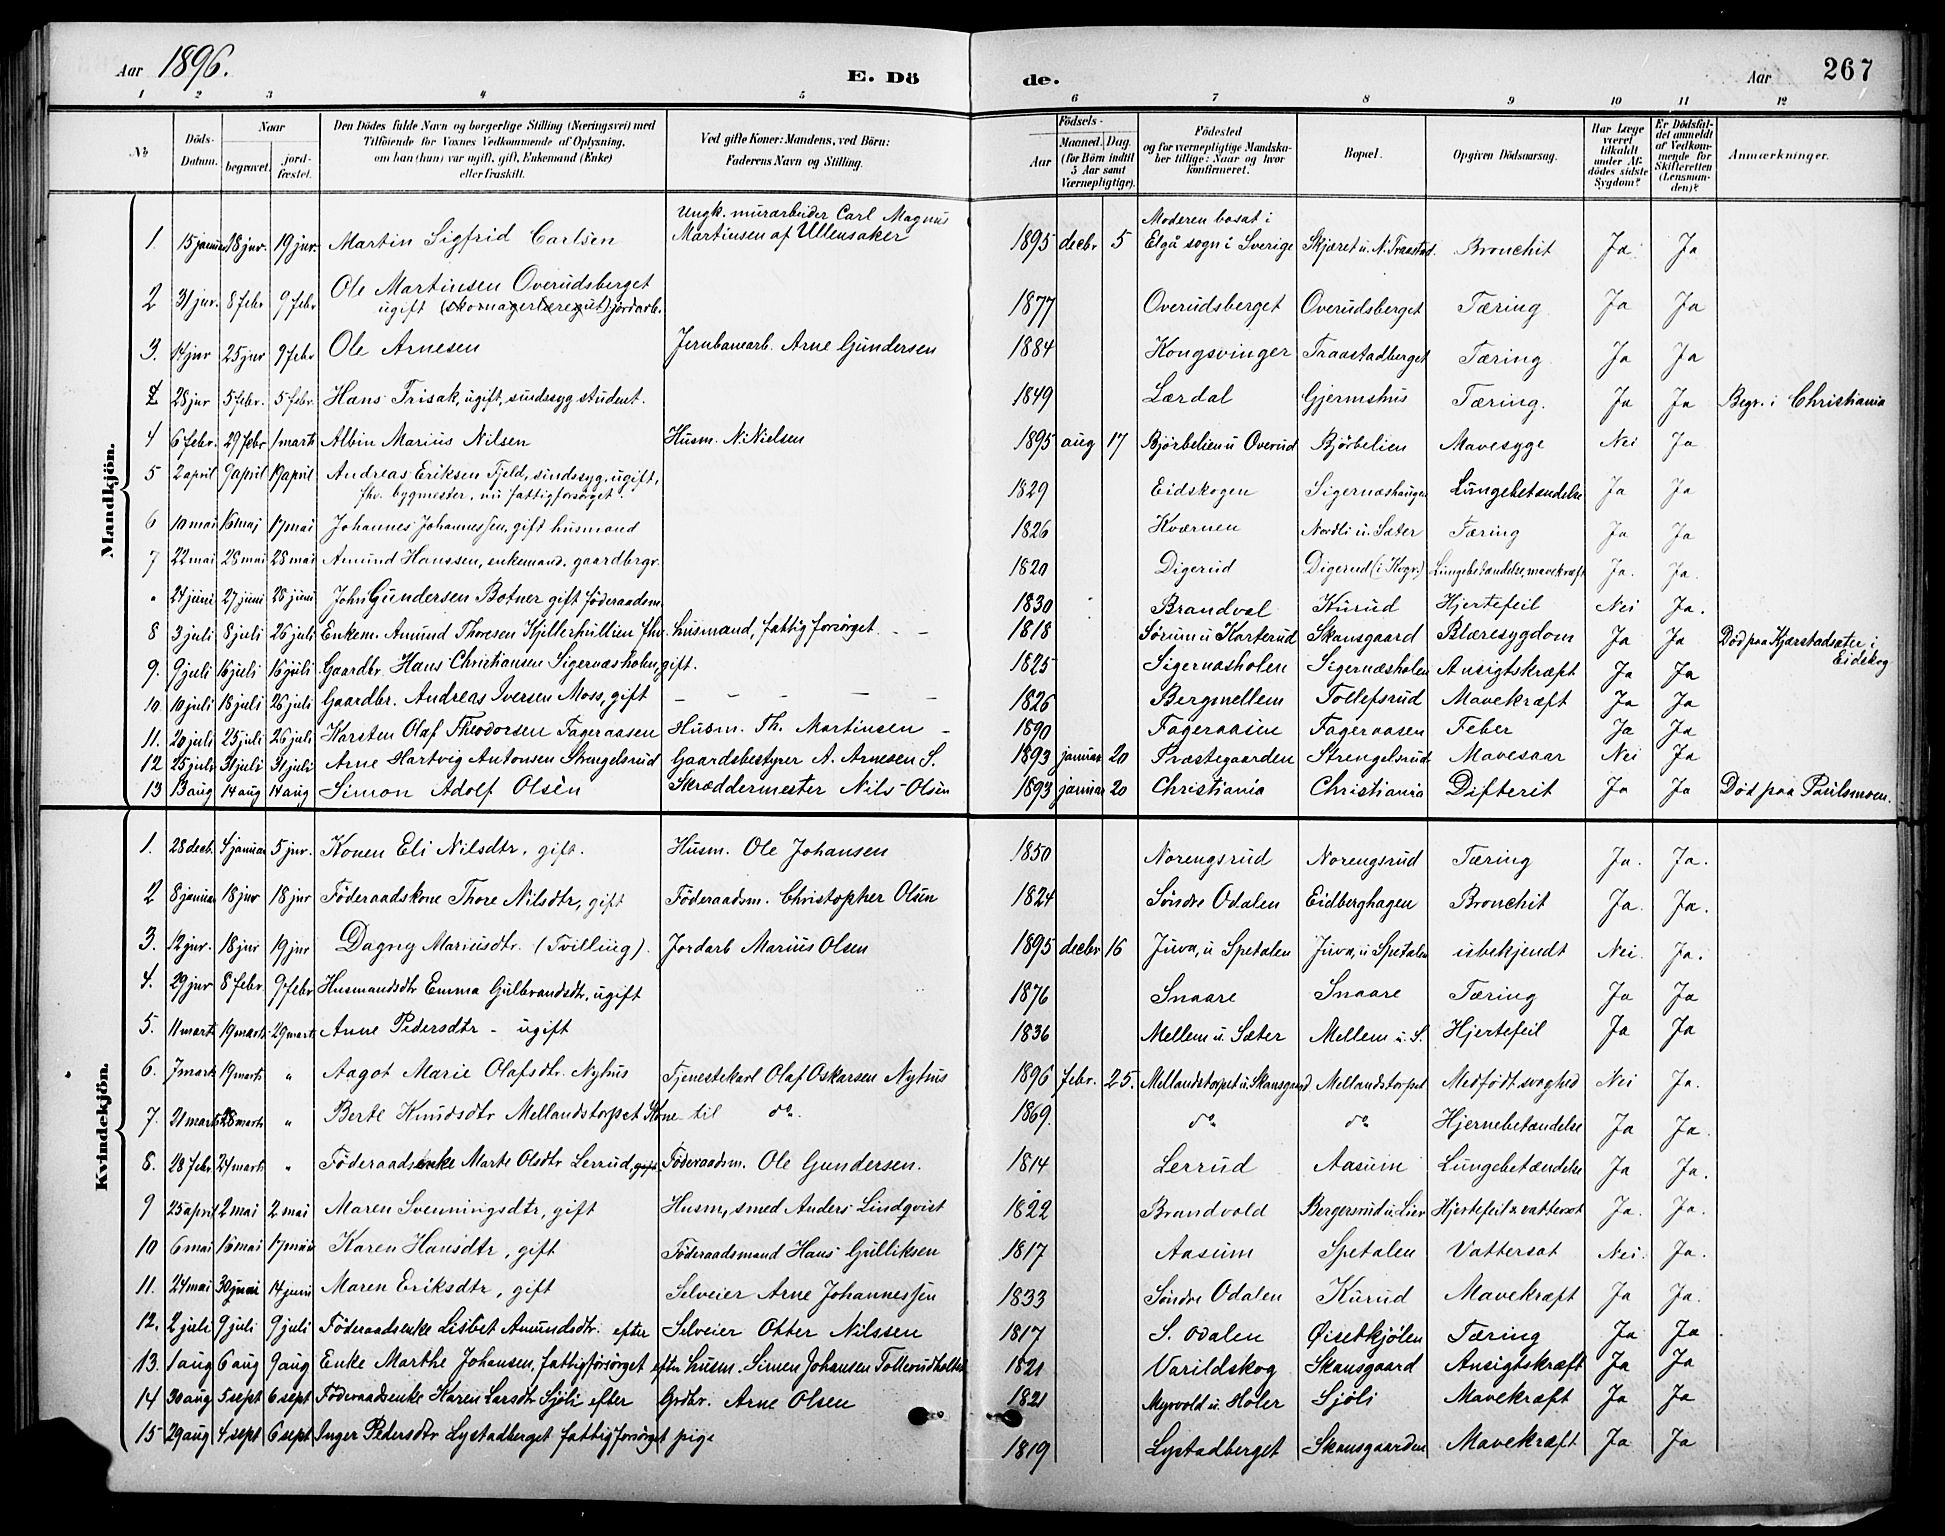 Aar 1896. E. Dö de. Aar 267
1 2 3 4 5 6 7 8 9 10 11 12
No
Döds-Datum.
Naar
begravet.
jordfæstet.
Den Dödes fulde Navn og borgerlige Stilling (Næringsvei) med
Tilföiende for Voxnes Vedkommende af Oplysning,
om han (hun) var ugift, gift, Enkemand (Enke)
eller fraskilt.
Ved gifte Koner: Mandens, ved Börn:
Faderens Navn og Stilling.
Födsels-
Aar
Maaned. Dag.
(for Börn indtil
5 Aar samt
Værnepligtige).
Födested
og for værnepligtige Mandska-
ber tillige: Naar og hvor
konfirmeret.
Bopæl.
Opgiven Dödsaarsag.
Har Læge
været
tilkaldt
under Af-
dödes sidste
Sygdom?
Er Dödsfal-
det anmeldt
af Vedkom-
mende for
Skifteretten
(Lensman-
den)?
Anmærkninger.
Mandkjön.
Ungk. murarbeider Carl Magnus Moderen bosat i
1. 15 januar 18 jnr. 19 jnr. Martin Sigfrid Carlsen Martinsen af Ullensaker 1895 decbr 5 Elgå sogn i Sverige Skjæret u. N. Traastad. Bronchit Ja Ja
2 31 jnr. 8 febr 9 febr Ole Martinsen Overudsberget 1877 Overudsberget Overudsberget Tæring Ja Ja
ugift (skomagerlæregut) jordarb.
3. 14 jnr 25 jnr 9 febr Ole Arnesen Jernbanearb. Arne Gundersen 1884 Kongsvinger Traastadberget Tæring Ja Ja
28 jnr 5 febr. 5 febr. Hans Frisak, ugift, sindssyg student. 1849 Lærdal Gjermshus Tæring. Ja Ja Begr. i Christiania
4 6 febr. 29 febr 1 marts Albin Marius Nilsen Husm. N. Nielsen 1895 aug 17 Bjørbelien u Overud Bjørbelien Mavesyge Nei Ja
5 2 april 9 april 19 april Andreas Eriksen Fjeld, sindssyg, ugift, 1829 Eidskogen Sigernæshaugen Lungebetændelse Ja Ja
fhv. bygmester, nu fattigforsørget.
6 10 mai 16 maj 17 mai Johannes Johannessen, gift husmand 1826 Kværnen Nordli u. Sæter Tæring Ja Ja
7 22 mai 28 mai 28 mai Amund Hanssen, enkemand. gaardbrgr. 1820 Digerud Digerud (i Kvgr.) Lungebetændelse, mavekræft Ja. Ja.
" 24 juni 27 juni 28 juni John Gundersen Botner gift föderaadsm. 1830 Brandval Kurud Hjertefeil Nei Ja.
8 3 juli 8 juli 26 juli Enkem. Amund Thoresen Kjillerhullien fhv. husmand, fattigforsørget - - 1818 Sørum u Karterud Skansgaard Blæresygdom Ja Ja Död paa Kjærstadsæter i
Eidskog
9. 9 juli 16 juli 16 juli Gaardbr. Hans Christiansen Sigernæsholen, gift. 1825 Sigernæsholen Sigernæsholen Ansigtskræft Ja Ja
10 10 juli 18 juli 26 juli Gaardbr. Andreas Iversen Moss, gift - - - - - 1826 Bergmellem Tollefsrud Mavekræft Ja Ja
11. 20 juli 25 juli 26 juli Karsten Olaf Theodorsen Fageraasen Husm. Th. Martinsen - 1890 Fageraasen Fageraasen Feber Ja Ja
12 25 juli 31 juli 31 juli Arne Hartvig Antonsen Strengelsrud Gaardsbestyrer A. Arnesen S. 1893 januar 20 Præstegaarden Strengelsrud Mavesaar Nei Ja
13 13 aug 14 aug 14 aug Simon Adolf Olsen Skræddermester Nils Olsen 1893 januar 20 Christiania Christiania Difterit Ja Ja Död paa Paulsmoen.
Kvindekjön.
1. 28 decb. 4 januar 5 jnr. Konen Eli Nilsdtr, gift. Husm. Ole Johansen 1850 Norengsrud Norengsrud Tæring Ja. Ja.
2 8 januar 18 jnr 18 jnr Föderaadskone Thore Nilsdtr, gift Föderaadsm. Christopher Olsen 1824 Søndre Odalen Eidberghagen Bronchit Ja. Ja.
3. 12 jnr. 18 jnr 19 jnr Dagny Mariusdtr. (Tvilling). Jordarb Marius Olsen 1895 decbr 16 Juva, u Spetalen Juva, u Spetalen ubekjendt Nei. Ja.
4. 29 jnr 8 febr. 9 febr Husmandsdtr Emma Gulbrandsdtr, ugift 1876 Snaare Snaare Tæring Ja Ja
5. 11 marts 19 marts 29 marts Anne Pedersdtr - ugift 1836 Mellem u. Sæter Mellem u. S. Hjertefeil Ja Ja
6. 7 marts 19 marts " Aagot Marie Olafsdtr. Nyhus Tjenestekarl Olaf Oskarsen Nyhus 1896 febr. 25. Mellandstorpet u. Skansgaard Mellandstorpet Medfödt svaghed Nei Ja.
7. 21 marts 28 marts " Berte Knudsdtr Mellandstorpet Kone til do. 1869. do do Hjernebetændelse Ja Ja.
8. 28 febr. 24 marts " Föderaadsenke Marte Olsdtr Lerrud, gift Föderaadsm. Ole Gundersen. 1814 Lerrud Aasum Lungebetændelse Ja Ja.
9 25 april 2 mai 2 mai Maren Svenningsdtr, gift Husm, smed Anders Lindqvist 1822 Brandvold Bergersrud u. Lier Hjertefeil & vattersot Ja. Ja.
10 6 mai 16 mai 17 mai Karen Hansdtr, gift Föderaadsmand Hans Gulliksen 1817 Aasum Spetalen Vattersot Nei. Ja.
11. 24 mai 30 mai 14 juni Maren Eriksdtr, gift Selveier Arne Johannessen 1833 Søndre Odalen Kurud Mavekræft Ja Ja.
12. 2 juli 9 juli 9 juli Föderaadsenke Lisbet Amundsdtr. efter Selveier Otter Nilssen 1817 S. Odalen Øisetkjølen Tæring Ja Ja.
13. 1 aug 6 aug 9 aug Enke Marthe Johansen, fattigforsørget efter husm. Simen Johansen 1821 Varildskog Skansgaard Ansigtskræft Ja Ja
14 30 aug 5 sept 6 sept Föderaadsenke Karen Larsdtr Sjöli efter Grdbr. Arne Olsen 1821 Myrvold u. Holer Sjöli Mavekræft Ja Ja
15 29 aug 4 sept 6 sept Inger Pedersdtr Lystadberget fattigforsørget pige 1819 Lystadberget Skansgaarden Mavekræft Ja Ja